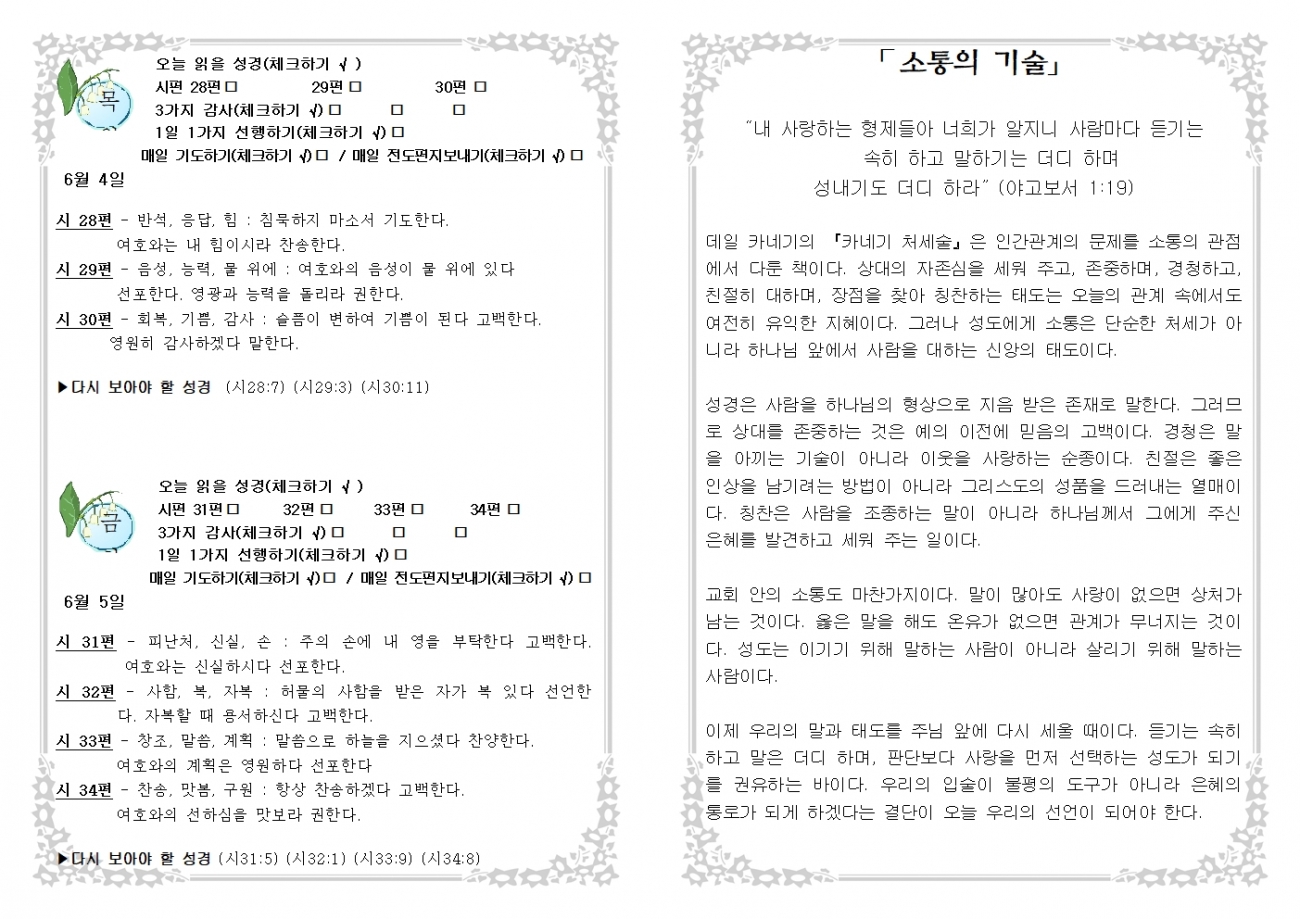 오늘 읽을 성경(체크하기 √ )
목
시편 28편 □ 29편 □ 30편 □
3가지 감사(체크하기 √) □ □ □
1일 1가지 선행하기(체크하기 √) □
매일 기도하기(체크하기 √) □ / 매일 전도편지보내기(체크하기 √) □
6월 4일
시 28편 - 반석, 응답, 힘 : 침묵하지 마소서 기도한다.
여호와는 내 힘이시라 찬송한다.
시 29편 - 음성, 능력, 물 위에 : 여호와의 음성이 물 위에 있다
선포한다. 영광과 능력을 돌리라 권한다.
시 30편 - 회복, 기쁨, 감사 : 슬픔이 변하여 기쁨이 된다 고백한다.
영원히 감사하겠다 말한다.
▶다시 보아야 할 성경 (시28:7) (시29:3) (시30:11)
오늘 읽을 성경(체크하기 √ )
금
시편 31편 □ 32편 □ 33편 □ 34편 □
3가지 감사(체크하기 √) □ □ □
1일 1가지 선행하기(체크하기 √) □
매일 기도하기(체크하기 √) □ / 매일 전도편지보내기(체크하기 √) □
6월 5일
시 31편 - 피난처, 신실, 손 : 주의 손에 내 영을 부탁한다 고백한다.
여호와는 신실하시다 선포한다.
시 32편 - 사함, 복, 자복 : 허물의 사함을 받은 자가 복 있다 선언한
다. 자복할 때 용서하신다 고백한다.
시 33편 - 창조, 말씀, 계획 : 말씀으로 하늘을 지으셨다 찬양한다.
여호와의 계획은 영원하다 선포한다
시 34편 - 찬송, 맛봄, 구원 : 항상 찬송하겠다 고백한다.
여호와의 선하심을 맛보라 권한다.
▶다시 보아야 할 성경 (시31:5) (시32:1) (시33:9) (시34:8)
「 소통의 기술」
“내 사랑하는 형제들아 너희가 알지니 사람마다 듣기는
속히 하고 말하기는 더디 하며
성내기도 더디 하라” (야고보서 1:19)
데일 카네기의 『카네기 처세술』은 인간관계의 문제를 소통의 관점
에서 다룬 책이다. 상대의 자존심을 세워 주고, 존중하며, 경청하고,
친절히 대하며, 장점을 찾아 칭찬하는 태도는 오늘의 관계 속에서도
여전히 유익한 지혜이다. 그러나 성도에게 소통은 단순한 처세가 아
니라 하나님 앞에서 사람을 대하는 신앙의 태도이다.
성경은 사람을 하나님의 형상으로 지음 받은 존재로 말한다. 그러므
로 상대를 존중하는 것은 예의 이전에 믿음의 고백이다. 경청은 말
을 아끼는 기술이 아니라 이웃을 사랑하는 순종이다. 친절은 좋은
인상을 남기려는 방법이 아니라 그리스도의 성품을 드러내는 열매이
다. 칭찬은 사람을 조종하는 말이 아니라 하나님께서 그에게 주신
은혜를 발견하고 세워 주는 일이다.
교회 안의 소통도 마찬가지이다. 말이 많아도 사랑이 없으면 상처가
남는 것이다. 옳은 말을 해도 온유가 없으면 관계가 무너지는 것이
다. 성도는 이기기 위해 말하는 사람이 아니라 살리기 위해 말하는
사람이다.
이제 우리의 말과 태도를 주님 앞에 다시 세울 때이다. 듣기는 속히
하고 말은 더디 하며, 판단보다 사랑을 먼저 선택하는 성도가 되기
를 권유하는 바이다. 우리의 입술이 불평의 도구가 아니라 은혜의
통로가 되게 하겠다는 결단이 오늘 우리의 선언이 되어야 한다.